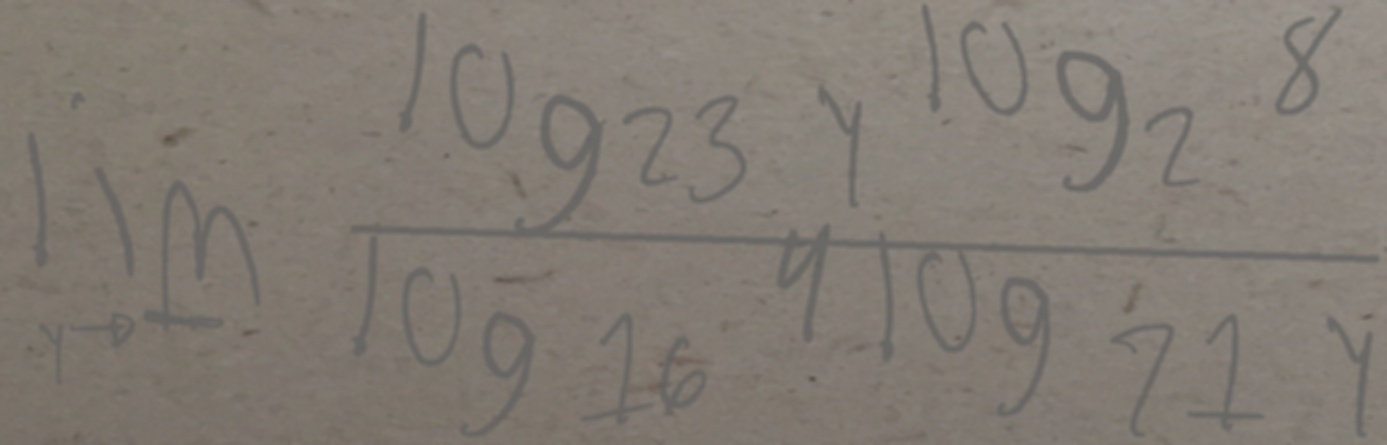 \lim_{y \to 1} \frac{\log_{23} y \log_2 8}{\log_{16} 4 \log_{71} y}